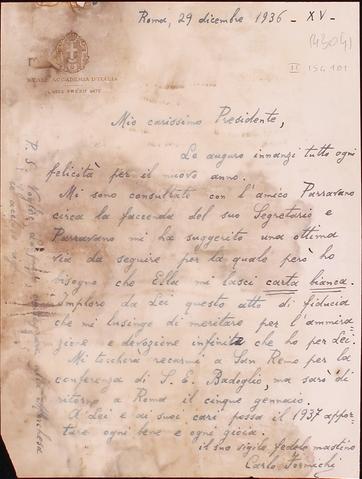 Roma, 29 dicembre 1936 - XV -
(4304)
II ISG 101
REALE ACCADEMIA D'ITALIA
Mio carissimo Presidente,
Le auguro innanzi tutto ogni
felicità per il nuovo anno.
Mi sono consultato con l'amico Parravano
circa la faccenda del suo Segretario e
Parravano mi ha suggerito una ottima
via da seguire per la quale però ho
bisogno che Ella mi lasci carta bianca.
Imploro da Lei questo atto di fiducia
che mi lusingo di meritare per l'ammira-
zione e devozione infinita che ho per Lei.
Mi toccherà recarmi a San Remo per la
conferenza di S. E. Badoglio, ma sarò di
ritorno a Roma il cinque gennaio.
A Lei e ai suoi cari possa il 1937 appor-
tare ogni bene e ogni gioia.
il suo vigile fedele mastino
Carlo Formichi
P. S.